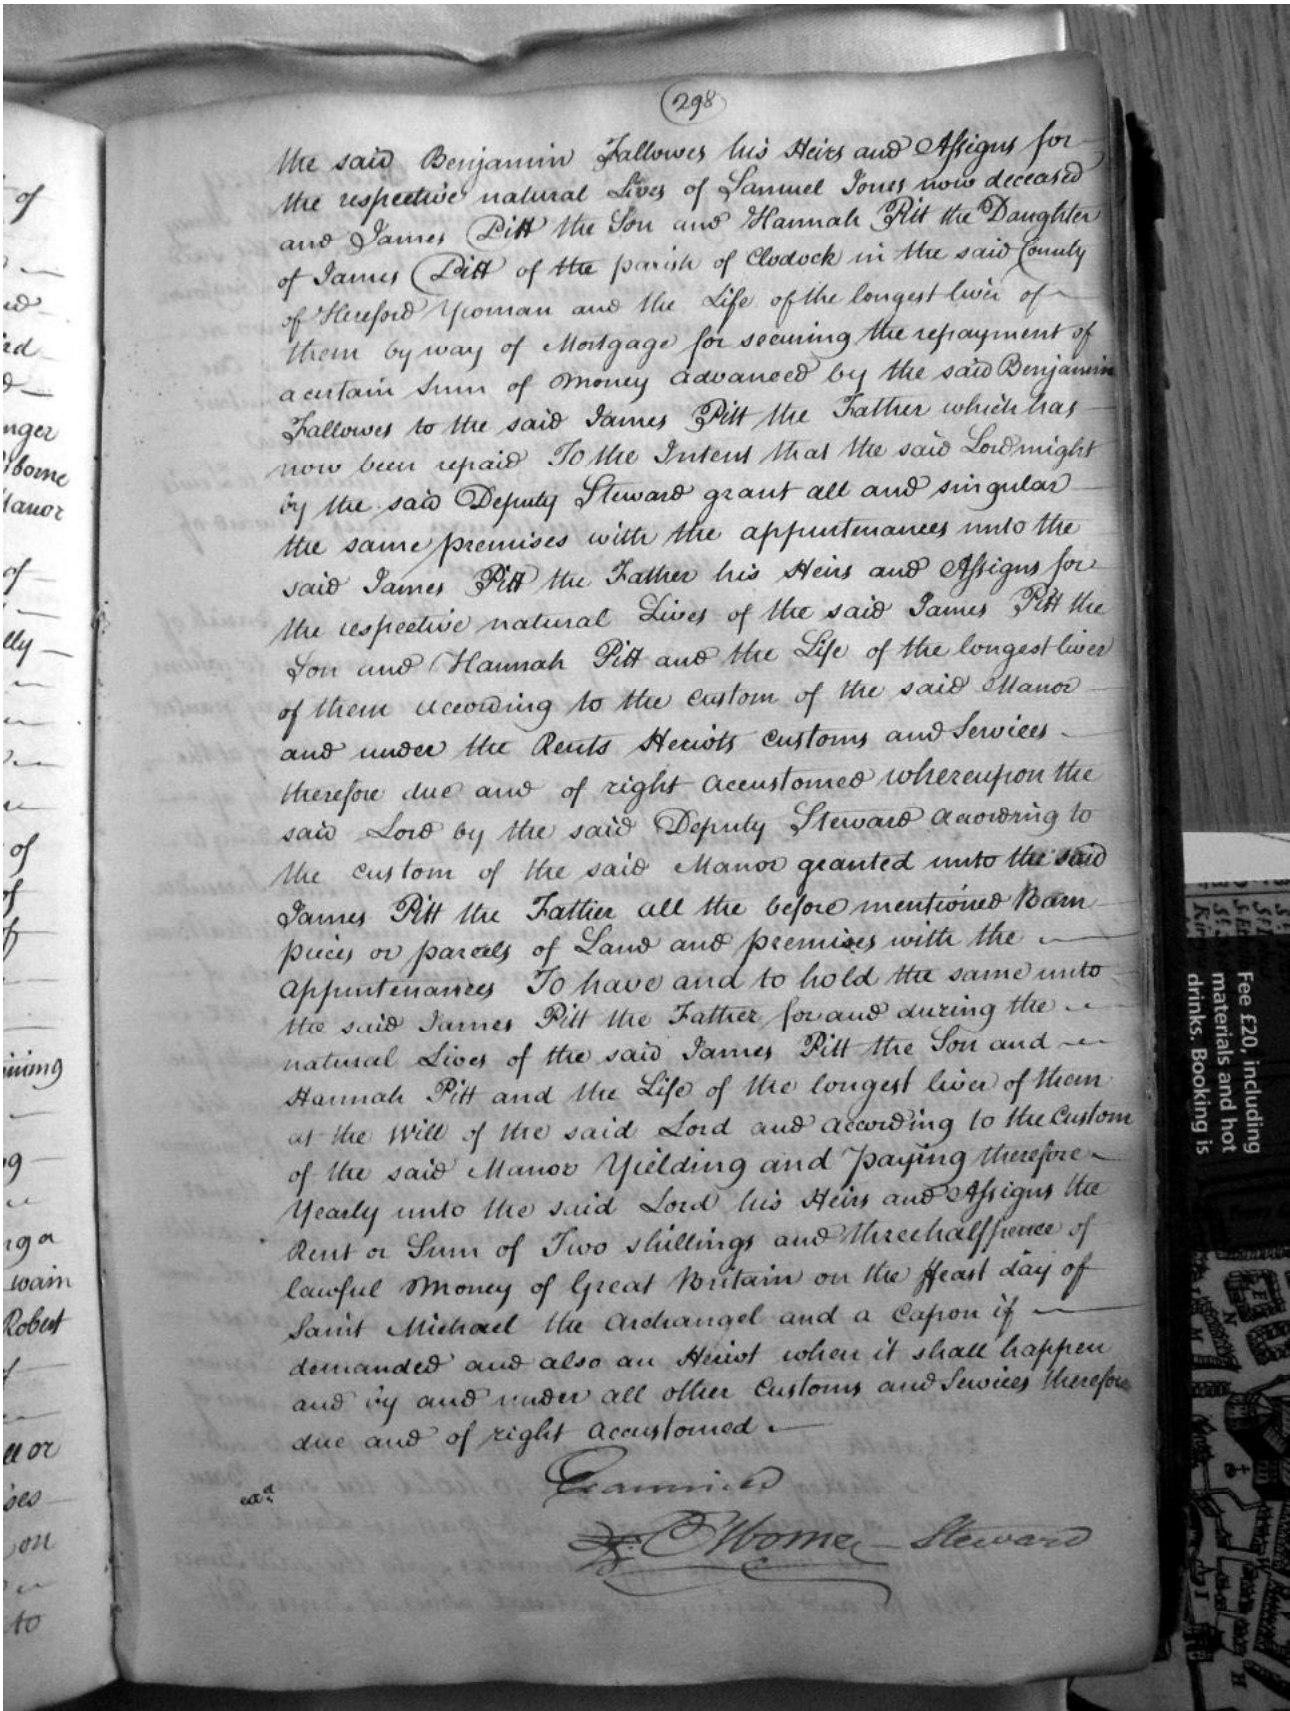 298
the said Benjamin Fallowes his Heirs and Assigns for
the respective natural Lives of Samuel Jones now deceased
and James Pitt the Son and Hannah Pitt the Daughter
of James Pitt of the parish of Clodock in the said County
of Hereford Yeoman and the Life of the longest liver of
them by way of Mortgage for securing the repayment of
a certain Sum of Money advanced by the said Benjamin
Fallowes to the said James Pitt the Father which has
now been repaid To the Intent that the said Lord might
by the said Deputy Steward grant all and singular
the same premises with the appurtenances unto the
said James Pitt the Father his Heirs and Assigns for
the respective natural Lives of the said James Pitt the
Son and Hannah Pitt and the Life of the longest liver
of them according to the custom of the said Manor
and under the Rents Heriots customs and Services
therefore due and of right accustomed whereupon the
said Lord by the said Deputy Steward according to
the custom of the said Manor granted unto the said
James Pitt the Father all the before mentioned Barn
pieces or parcels of Land and premises with the
appurtenances To have and to hold the same unto
the said James Pitt the Father for and during the
natural Lives of the said James Pitt the Son and
Hannah Pitt and the Life of the longest liver of them
at the Will of the said Lord and according to the Custom
of the said Manor Yielding and paying therefore
Yearly unto the said Lord his Heirs and Assigns the
Rent or Sum of Two shillings and threehalfpence of
lawful Money of Great Britain on the ffeast day of
Saint Michael the Archangel and a Capon if
demanded and also an Heriot when it shall happen
and by and under all other Customs and Services therefore
due and of right accustomed
Examined
exd
Steward
of
of
Manor
of
of
of
Robert
on
to
Fee £20, including
materials and hot
drinks. Booking is